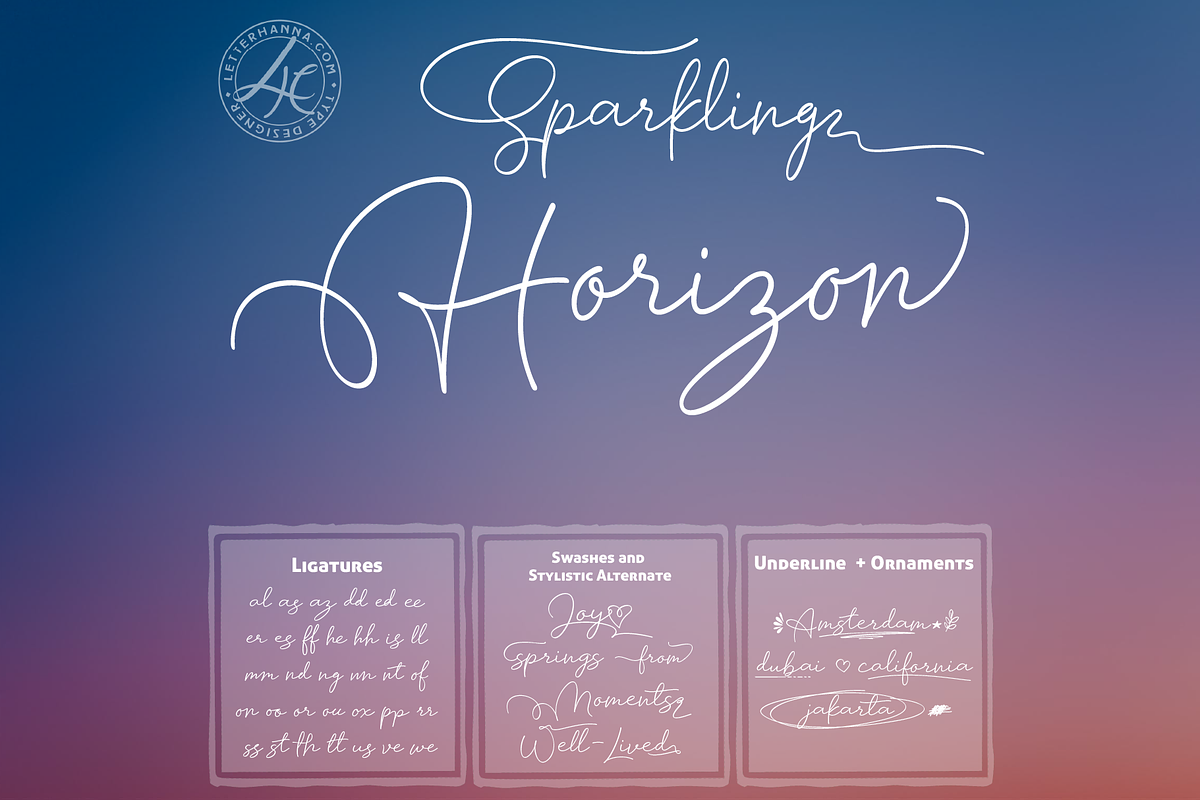 LETTERHANNA.COM • TYPE DESIGNER •
LH
Sparkling
Horizon
Ligatures
al as az dd ed ee
er es ff he hh is ll
mm nd ng nn nt of
on oo or ou ox pp rr
ss st th tt us ve we
Swashes and
Stylistic Alternate
Joy
springs from
Moments
Well-Lived
Underline + Ornaments
Amsterdam
dubai california
jakarta